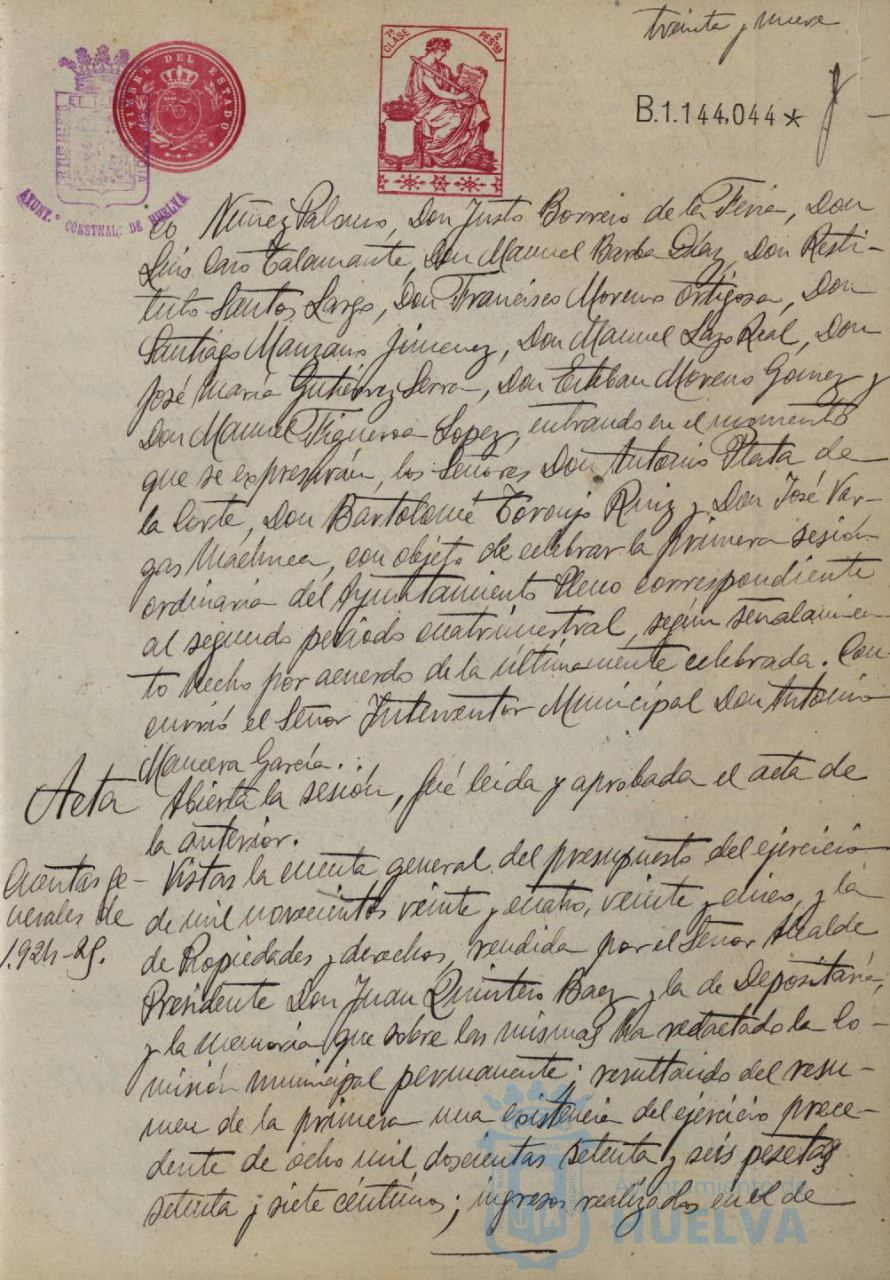 treinta y nueve
7ª CLASE 2 PESTAS
TIMBRE DEL ESTADO
B.1.144,044*
AYUNTº CONSTNAL: DE HUELVA
co Nuñez Palomo, Don Justo Borrero de la Feria, Don
Luis Caro Talamante, Don Manuel Barba Díaz, Don Resti-
tuto Santos Largo, Don Francisco Moreno Ortigosa, Don
Santiago Manzano Jimenez, Don Manuel Lazo Real, Don
José María Gutiérrez Serra, Don Esteban Moreno Gómez y
Don Manuel Figueroa Lopez, entrando en el momento
que se expresarán, los Señores Don Antonio Plata de
la Corte, Don Bartolomé Toronjo Ruiz y Don José Var-
gas Machuca, con objeto de celebrar la primera sesión
ordinaria del Ayuntamiento Pleno correspondiente
al segundo período cuatrimestral, según señalamien-
to hecho por acuerdo de la últimamente celebrada. Con-
currió el Señor Interventor Municipal Don Antonio
Mancera García.
Acta Abierta la sesión, fué leida y aprobada el acta de
la anterior.
Cuentas ge-
nerales de
1.924-25.
Vistas la cuenta general del presupuesto del ejercicio
de mil novecientos veinte y cuatro, veinte y cinco, y la
de Propiedades y derechos, rendida por el Señor Alcalde
Presidente Don Juan Quintero Baez y la de Depositaría,
y la memoria que sobre las mismas ha redactado la Co-
misión municipal permanente; resultando del resu-
men de la primera una existencia del ejercicio prece-
dente de ocho mil doscientas setenta y seis pesetas
setenta y siete céntimos; ingresos realizados en el de
Ayuntamiento de
HUELVA